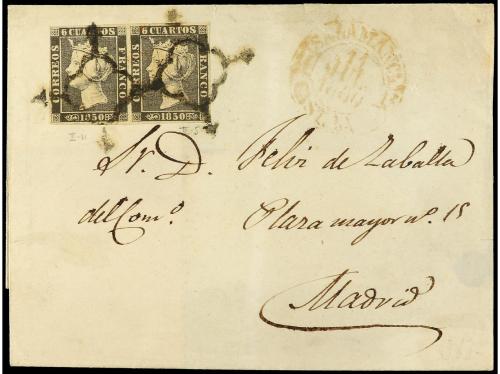 6 CUARTOS 6 CUARTOS
CORREOS FRANCO CORREOS FRANCO
1850 1850
SALAMANCA
Sr. D. Felix de Zaballa
del Com.º Plaza mayor nº. 15
Madrid